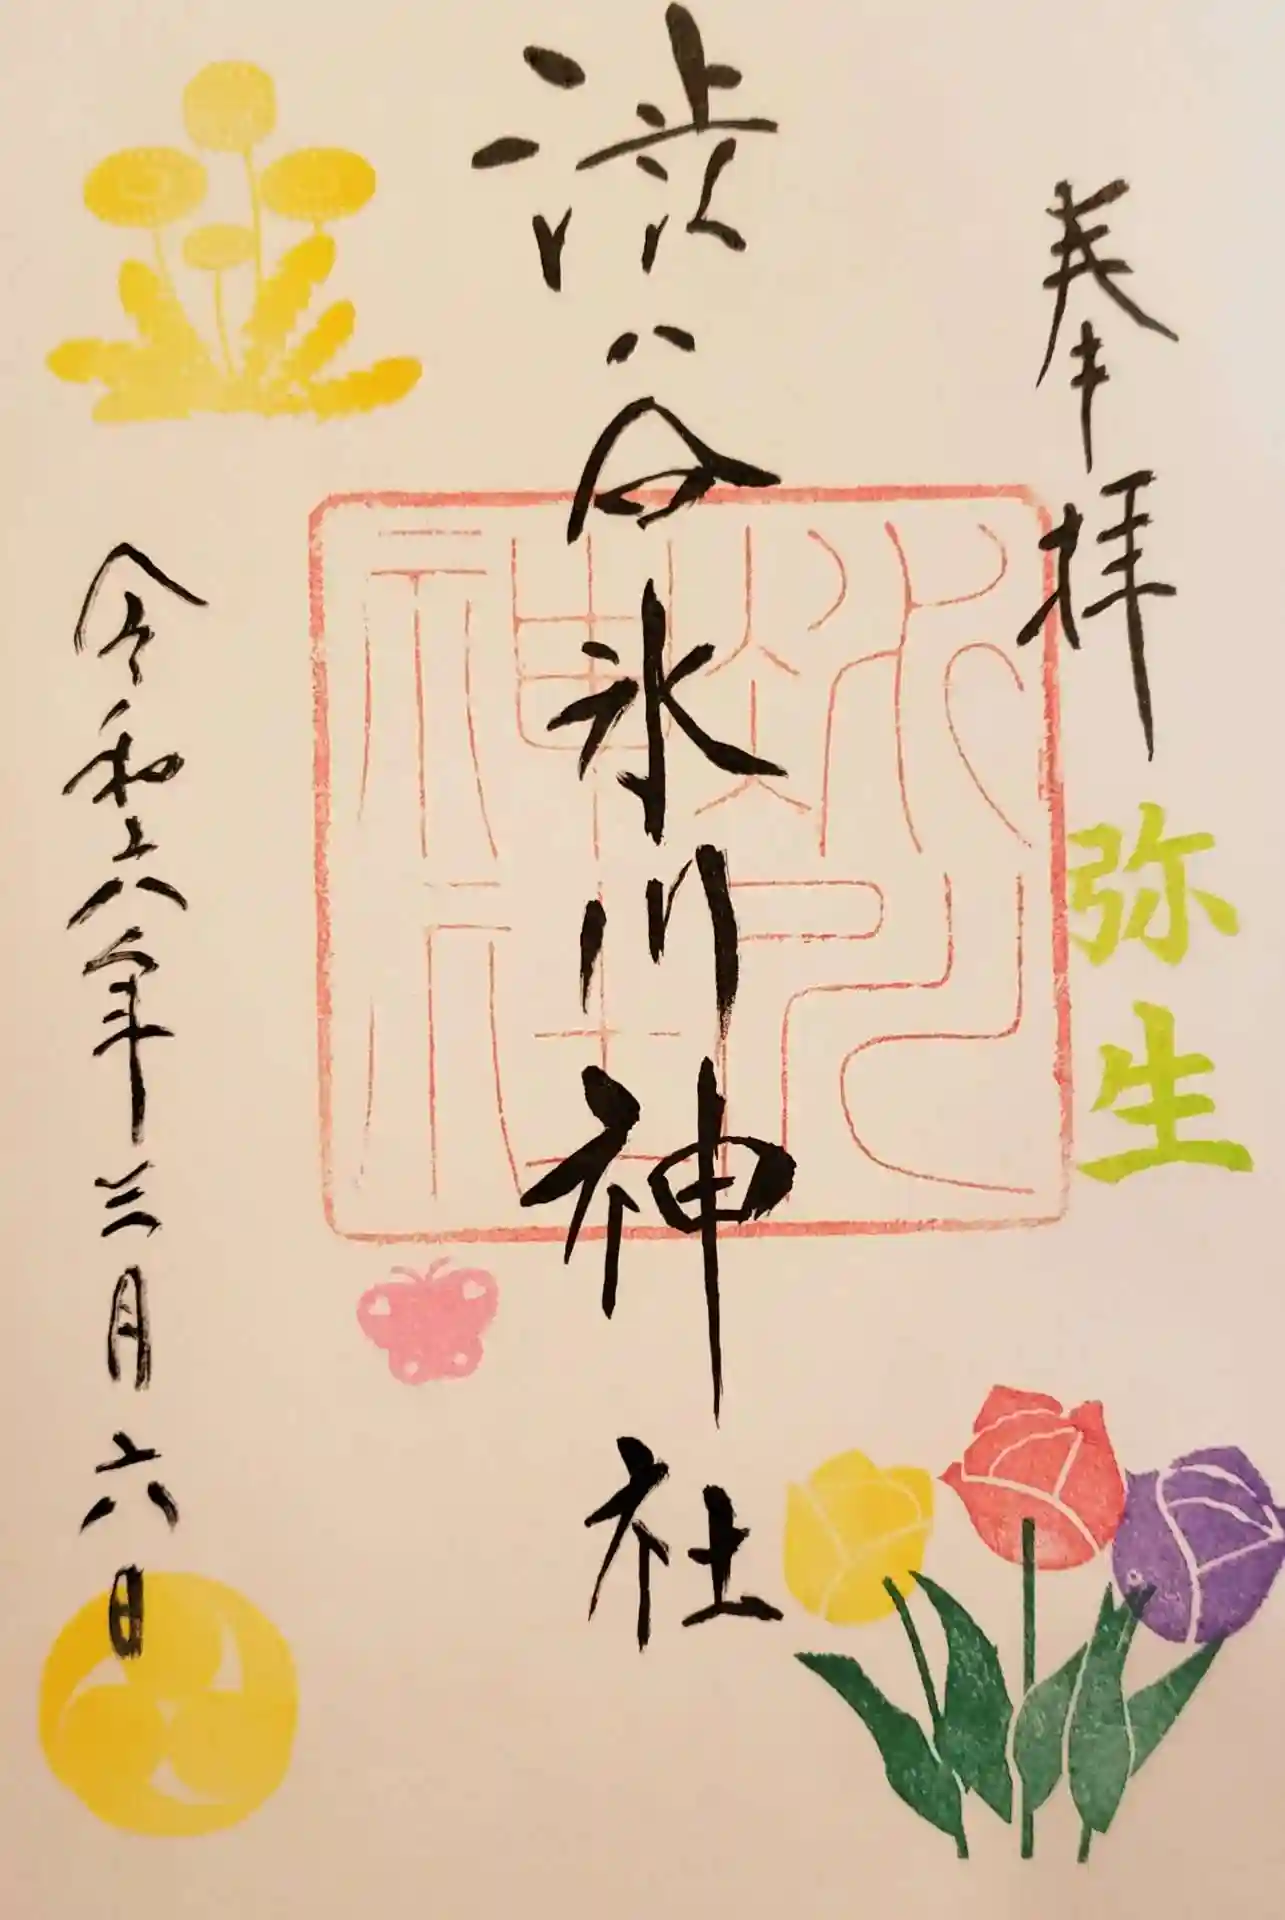 奉拝
弥生
渋谷氷川神社
氷川
神社
令和六年三月六日